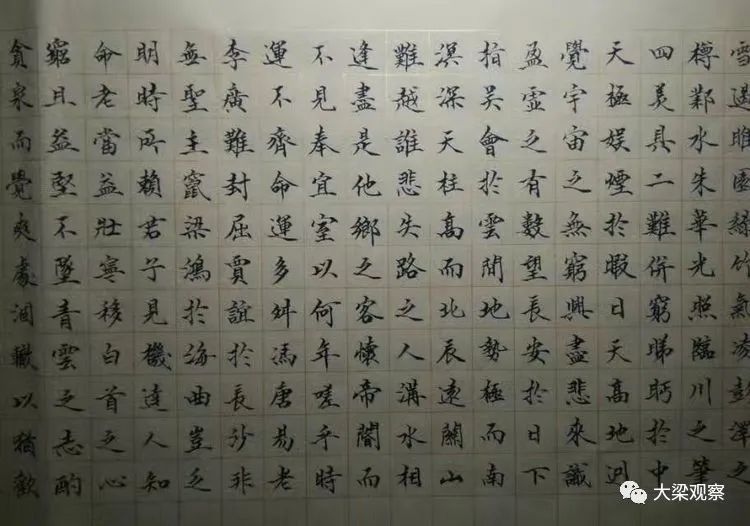 雲遏睢園綠竹氣淩彭澤之
樽鄴水朱華光照臨川之筆
四美具二難併窮睇眄於中
天極娛於暇日天高地迥
覺宇宙之無窮興盡悲來識
盈虛之有數望長安於日下
指吳會於雲間地勢極而南
溟深天柱高而北辰遠關山
難越誰悲失路之人溝水相
逢盡是他鄉之客懷帝閽而
不見奉宣室以何年嗟乎時
運不齊命運多舛馮唐易老
李廣難封屈賈誼於長沙非
無聖主竄梁鴻於海曲豈乏
明時所賴君子見機達人知
命老當益壯寧移白首之心
窮且益堅不墜青雲之志酌
貪泉而覺爽處涸轍以猶歡
大梁观察